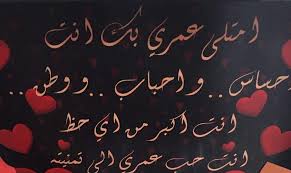 امتلى عمري بك انت
احساس .. و احباب .. و وطن ..
انت اكبر من اي حظ
انت حب عمري الي تمنيته